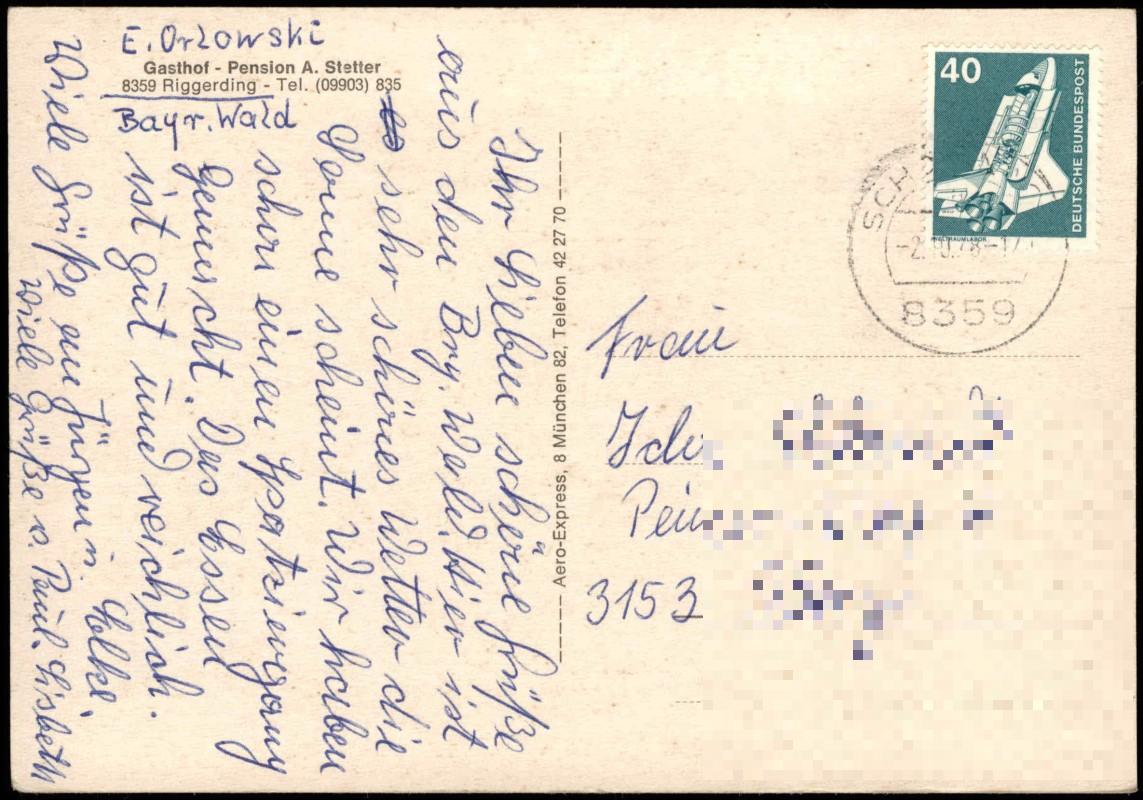 E. Orlowski
Gasthof - Pension A. Stetter
8359 Riggerding - Tel. (09903) 835
Bayr. Wald
Ihr Lieben schöne Grüße
aus den Bay. Wald. Hier ist
sehr schönes Wetter die
Sonne scheint. Wir haben
schon einen Spatziergang
gemacht. Das Essen
ist gut und reichlich.
Viele Grüße an Jürgen
Viele Grüße v. Paul. Lisbeth
Aero-Express, 8 München 82, Telefon 42 27 70
40
DEUTSCHE BUNDESPOST
WELTRAUMLABOR
8359
Frau
3153